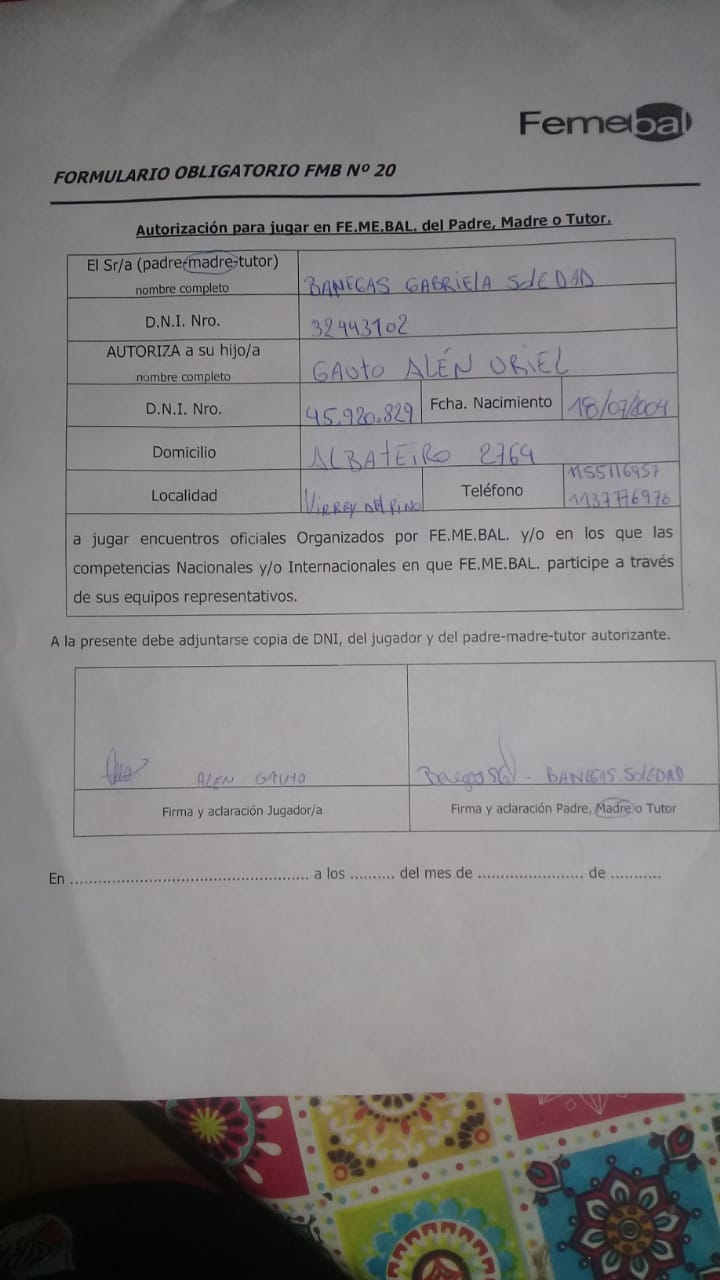 Femebal
FORMULARIO OBLIGATORIO FMB Nº 20
Autorización para jugar en FE.ME.BAL. del Padre, Madre o Tutor.
El Sr/a (padre-madre-tutor)
nombre completo
BANEGAS GABRIELA SOLEDAD
D.N.I. Nro.
32443102
AUTORIZA a su hijo/a
nombre completo
GAUTO ALÉN URIEL
D.N.I. Nro. 45.920.829 Fcha. Nacimiento 18/07/2004
Domicilio ALBATEIRO 2764
Localidad VIRREY DEL PINO Teléfono 1155116957
1137776976
a jugar encuentros oficiales Organizados por FE.ME.BAL. y/o en los que las
competencias Nacionales y/o Internacionales en que FE.ME.BAL. participe a través
de sus equipos representativos.
A la presente debe adjuntarse copia de DNI, del jugador y del padre-madre-tutor autorizante.
ALEN GAUTO
BANEGAS SOLEDAD
Firma y aclaración Jugador/a
Firma y aclaración Padre, Madre o Tutor
En .................................................. a los .......... del mes de ....................... de ...........